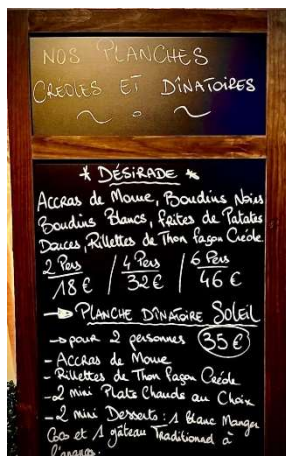 NOS PLANCHES
CRÉOLES ET DÎNATOIRES
* DÉSIRADE *
Accras de Morue, Boudins Noirs
Boudins Blancs, frites de Patates
Douces, Rillettes de Thon façon Créole.
2 Pers / 4 Pers / 6 Pers
18€ / 32€ / 46€
→ PLANCHE DÎNATOIRE SOLEIL
→ pour 2 personnes 35€
- Accras de Morue
- Rillettes de Thon façon Créole
- 2 mini Plats Chauds au Choix
- 2 mini Desserts : 1 Blanc Manger
Coco et 1 gâteau Traditionnel à
l'ananas.